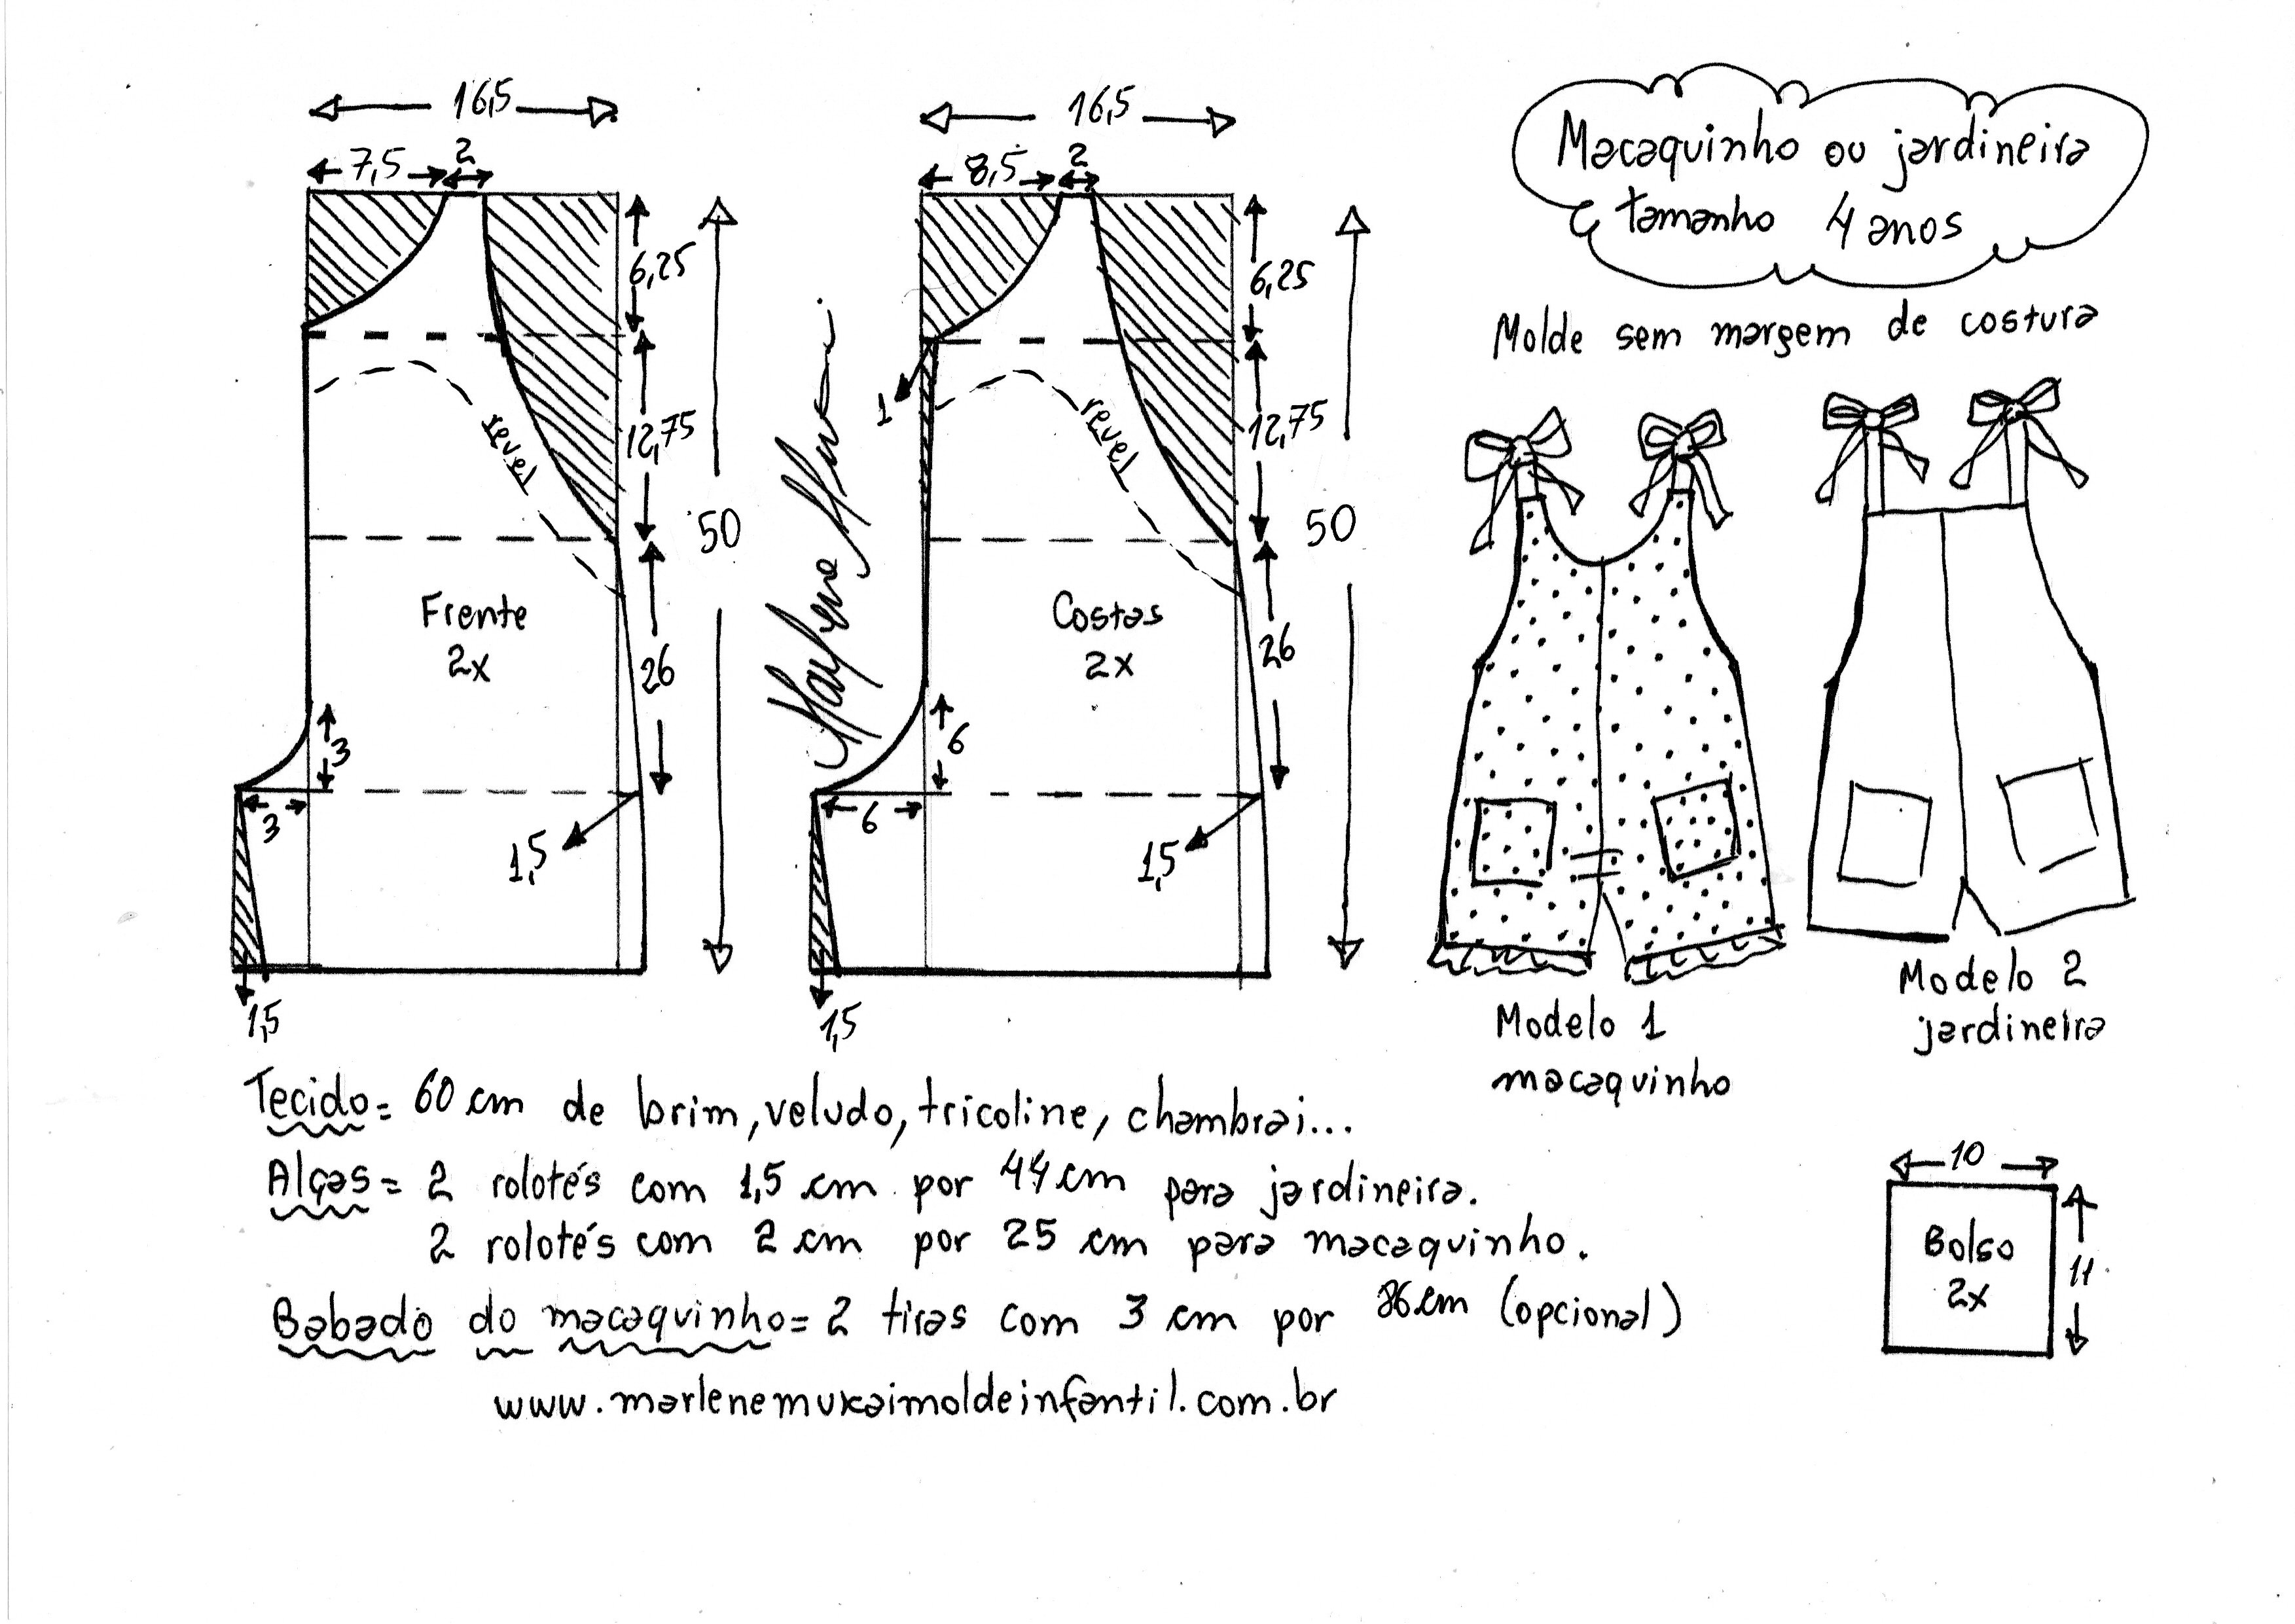 16,5
7,5
2
6,25
12,75
50
revel
Frente
2x
26
3
3
1,5
1,5
16,5
8,5
2
6,25
1
12,75
50
revel
Costas
2x
26
6
6
1,5
1,5
Macaquinho ou jardineira
tamanho 4 anos
Molde sem margem de costura
Modelo 1
macaquinho
Modelo 2
jardineira
Tecido = 60 cm de brim, veludo, tricoline, chambrai...
Alças = 2 rolotés com 1,5 cm por 44 cm para jardineira.
2 rolotés com 2 cm por 25 cm para macaquinho.
Babado do macaquinho = 2 tiras com 3 cm por cm (opcional)
www.marlenemukaimoldeinfantil.com.br
10
Bolso
2x
11